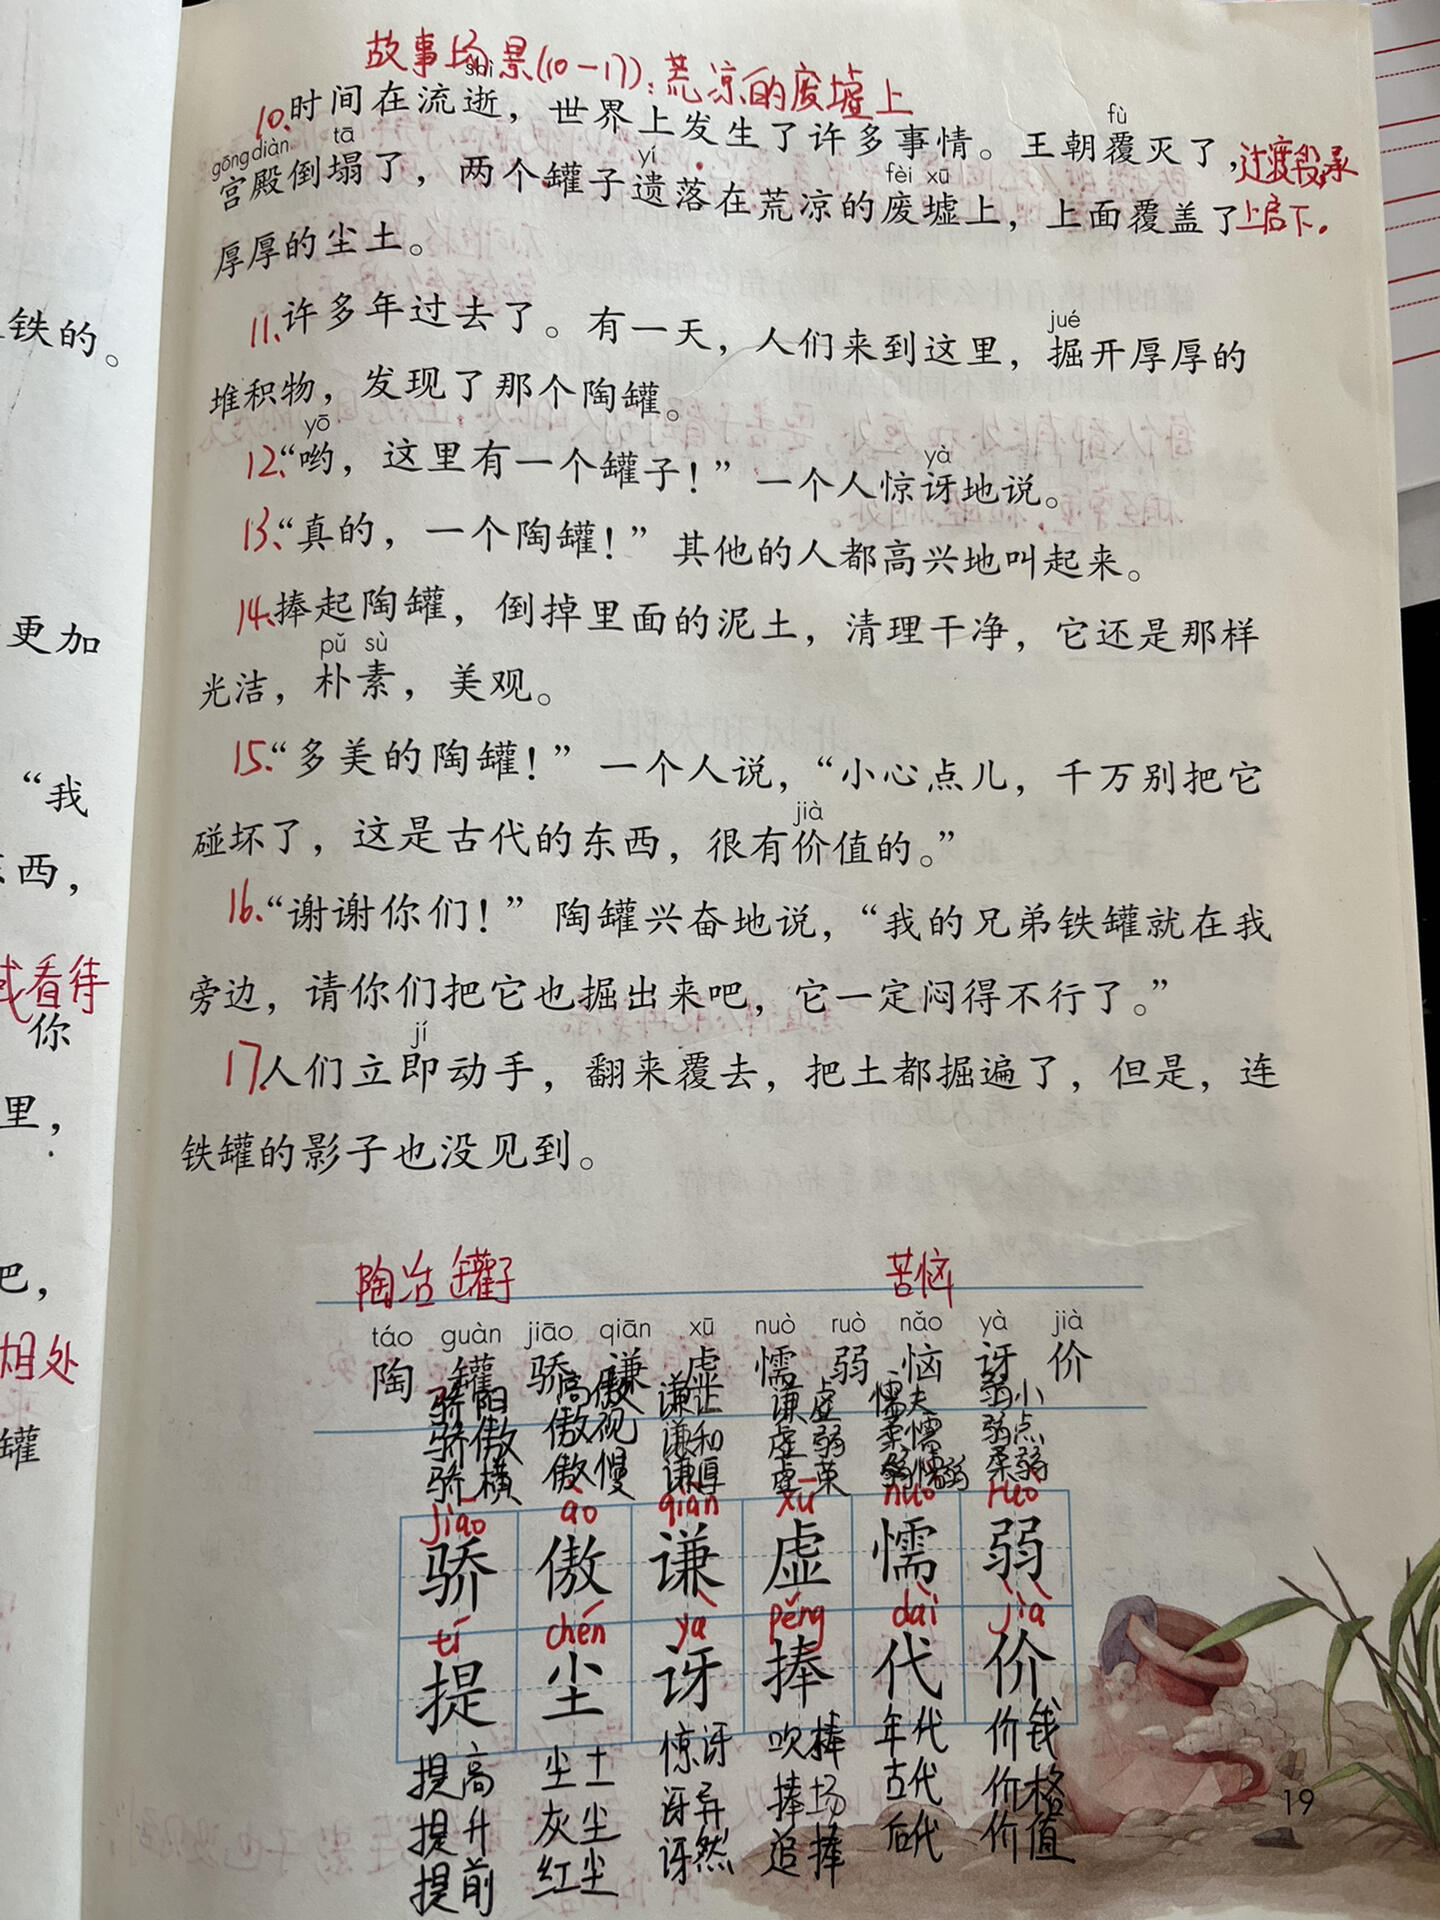 故事场景(10-17):荒凉的废墟上
shì
10、时间在流逝，世界上发生了许多事情。王朝覆灭了，过渡段,承
gōng diàn tā yí fèi xū fù
宫殿倒塌了，两个罐子遗落在荒凉的废墟上，上面覆盖了上启下。
厚厚的尘土。
jué
11、许多年过去了。有一天，人们来到这里，掘开厚厚的
堆积物，发现了那个陶罐。
yō yà
12、“哟，这里有一个罐子！”一个人惊讶地说。
13、“真的，一个陶罐！”其他的人都高兴地叫起来。
14、捧起陶罐，倒掉里面的泥土，清理干净，它还是那样
pǔ sù
光洁，朴素，美观。
15、“多美的陶罐！”一个人说，“小心点儿，千万别把它
jià
碰坏了，这是古代的东西，很有价值的。”
16、“谢谢你们！”陶罐兴奋地说，“我的兄弟铁罐就在我
旁边，请你们把它也掘出来吧，它一定闷得不行了。”
jí
17人们立即动手，翻来覆去，把土都掘遍了，但是，连
铁罐的影子也没见到。
陶冶 罐子 苦恼
táo guàn jiāo qiān xū nuò ruò nǎo yà jià
陶 罐 骄 谦 虚 懦 弱 恼 讶 价
骄阳 高傲 谦让 谦虚 懦夫 弱小
骄傲 傲视 谦和 虚弱 柔懦 弱点
骄横 傲慢 谦厚 虚荣 懦弱 柔弱
jiāo ào qiān xū nuò ruò
骄 傲 谦 虚 懦 弱
tí chén yà pěng dài jià
提 尘 讶 捧 代 价
提高 尘土 惊讶 吹捧 年代 价钱
提升 灰尘 讶异 捧场 古代 价格
提前 红尘 讶然 追捧 后代 价值
19
铁的。
更加
“我
西，
看待
你
里，
吧，
相处
罐